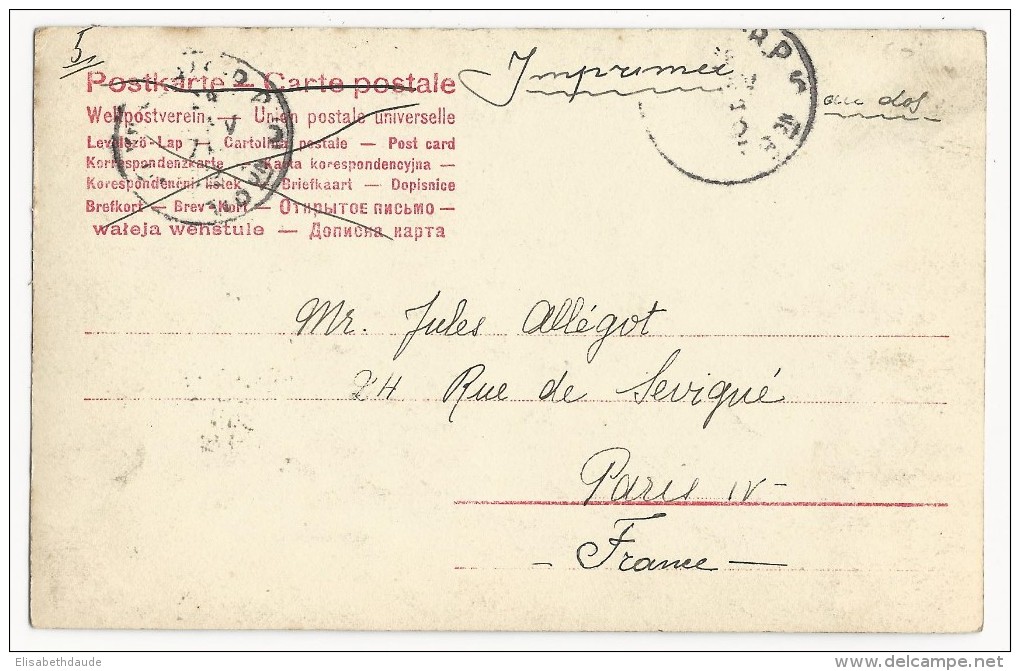 5
Postkarte — Carte postale
Weltpostverein — Union postale universelle
Levelező-Lap — Cartolina postale — Post card
Korrespondenzkarte — Karta korespondencyjna —
Korespondenční lístek — Briefkaart — Dopisnice
Brefkort — Brev-Kort — Открытое письмо —
wałeja wehstule — Дописна карта
Imprimée
au dos
Mr. Jules Allégot
24 Rue de Sevigné
Paris IV -
- France -
Elisabethdaude
www.delcampe.net